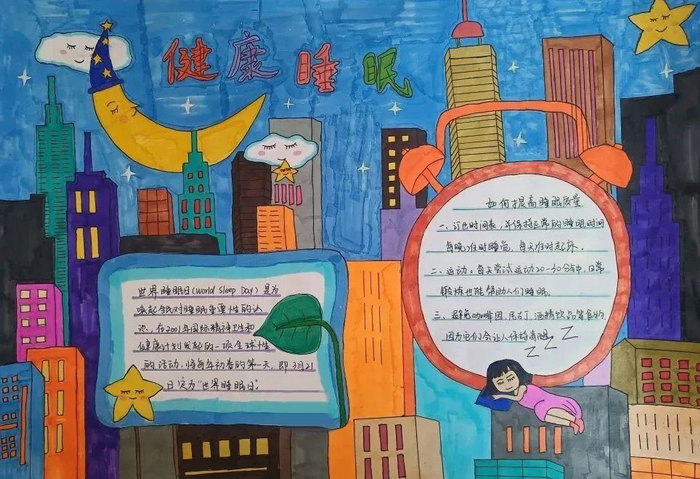 健康睡眠
世界睡眠日(World Sleep Day)是为
唤起全民对睡眠重要性的认
识，在2001年国际精神卫生和
健康计划发起的一项全球性
的活动，将每年初春的第一天，即3月21
日定为"世界睡眠日"
如何提高睡眠质量
一、订出时间表，并保持正常的睡眠时间
每晚准时睡觉，每天准时起床。
二、运动。每天尝试运动20-30分钟，日常
锻炼也能帮助人们睡眠。
三、避免咖啡因、尼古丁、酒精饮品等食物
因为它们会让人保持清醒
ZZZ